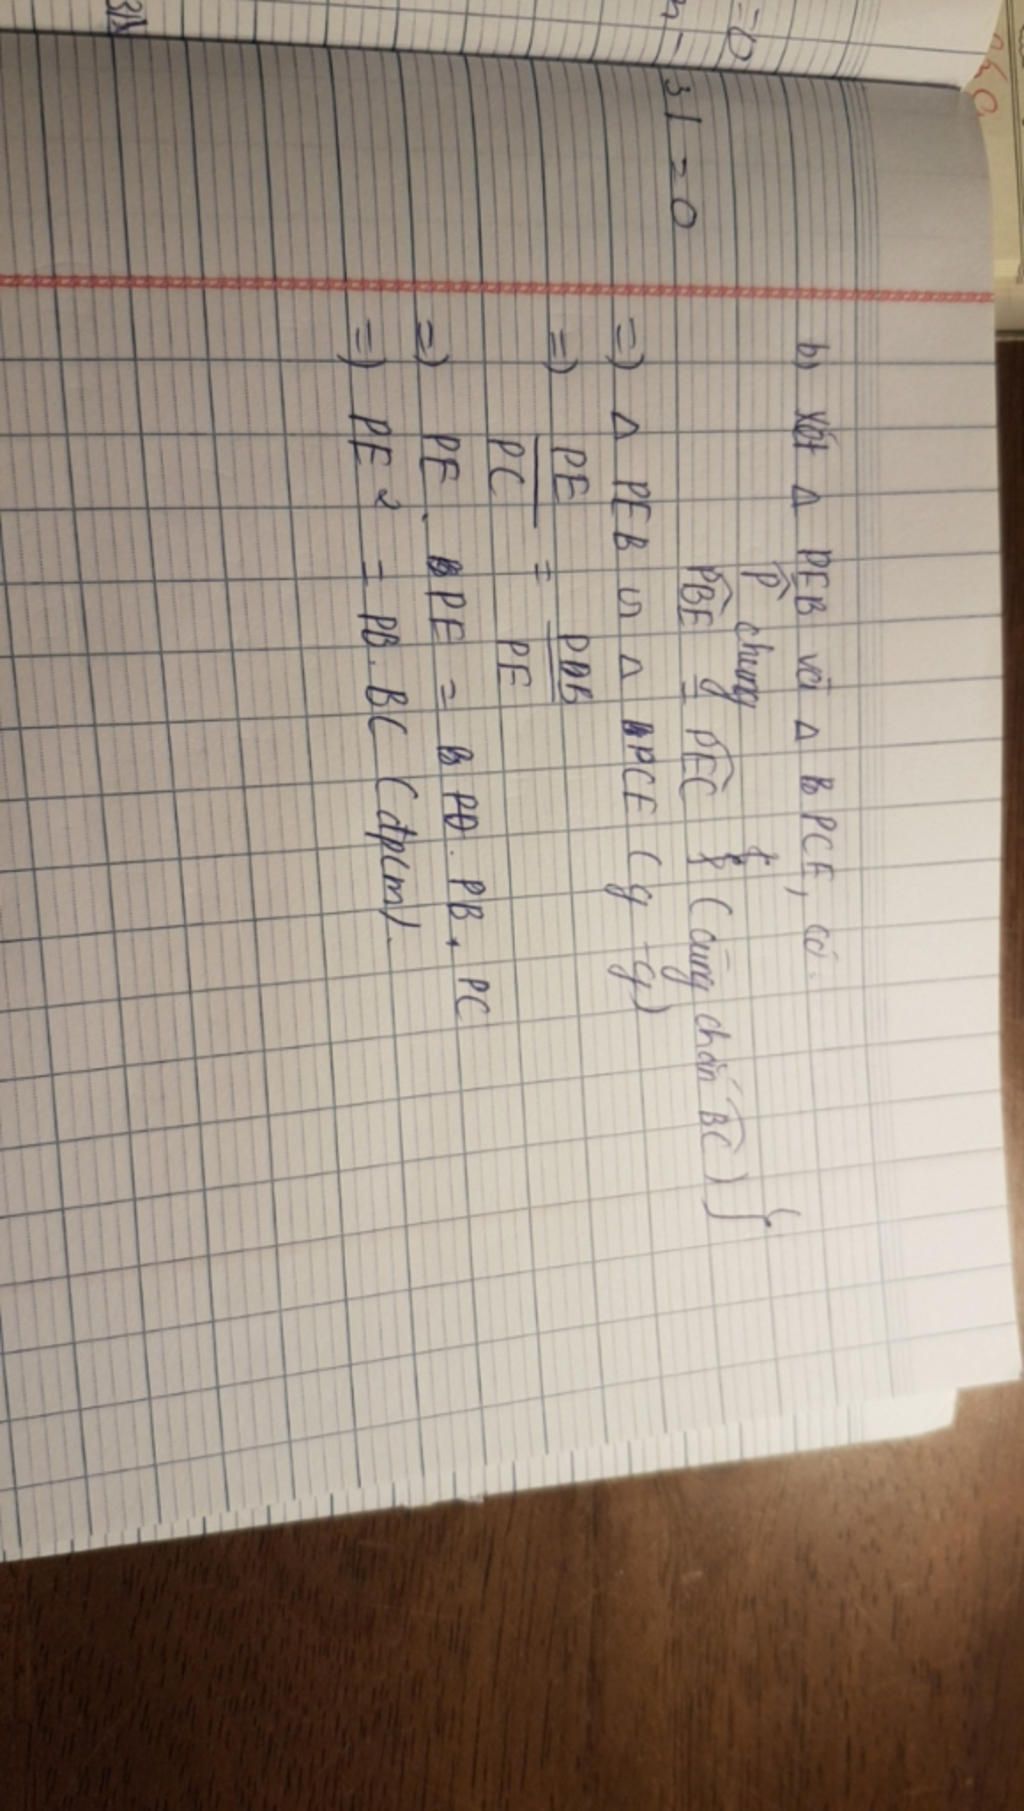 =0
31 = 0
b) Xét Δ PEB với Δ PCE, có.
P̂ chung
PBE = PEC (cùng chắn BC) }
=) Δ PEB ᔕ Δ PCE (g-g)
=) PE/PC = PB/PE
=) PE . PE = PB . PC
=) PE² = PB. BC (đpcm).